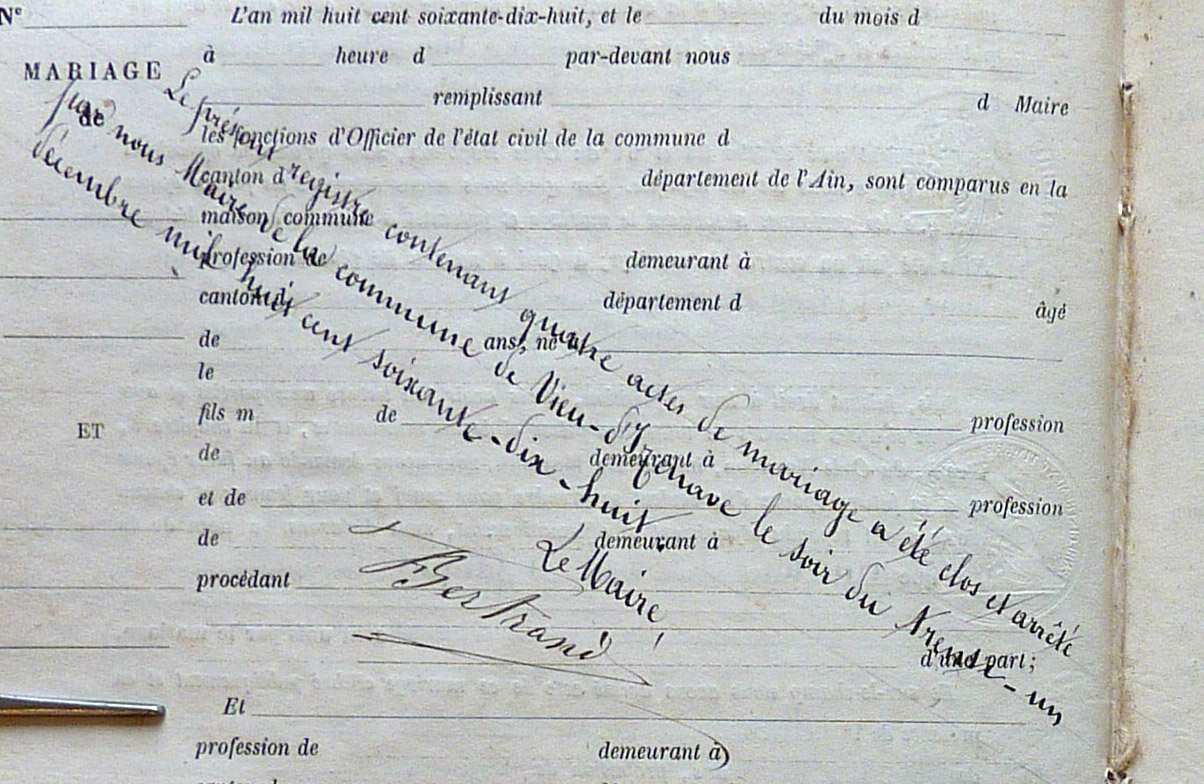 N°
L'an mil huit cent soixante-dix-huit, et le du mois d
à heure d par-devant nous
MARIAGE
remplissant d Maire
de
les fonctions d'Officier de l'état civil de la commune d
canton d département de l'Ain, sont comparus en la
maison commune
profession de demeurant à
canton d département d âgé
de ans, né à
le
fils m de profession
ET
de demeurant à
et de profession
de demeurant à
procédant
d'une part;
Et
profession de demeurant à
Le présent registre contenant quatre actes de mariage a été clos et arrêté
par nous Maire de la commune de Vieu-d'Yzenave le soir du trente-un
decembre mil huit cent soixante-dix-huit
Le Maire
Bertrand